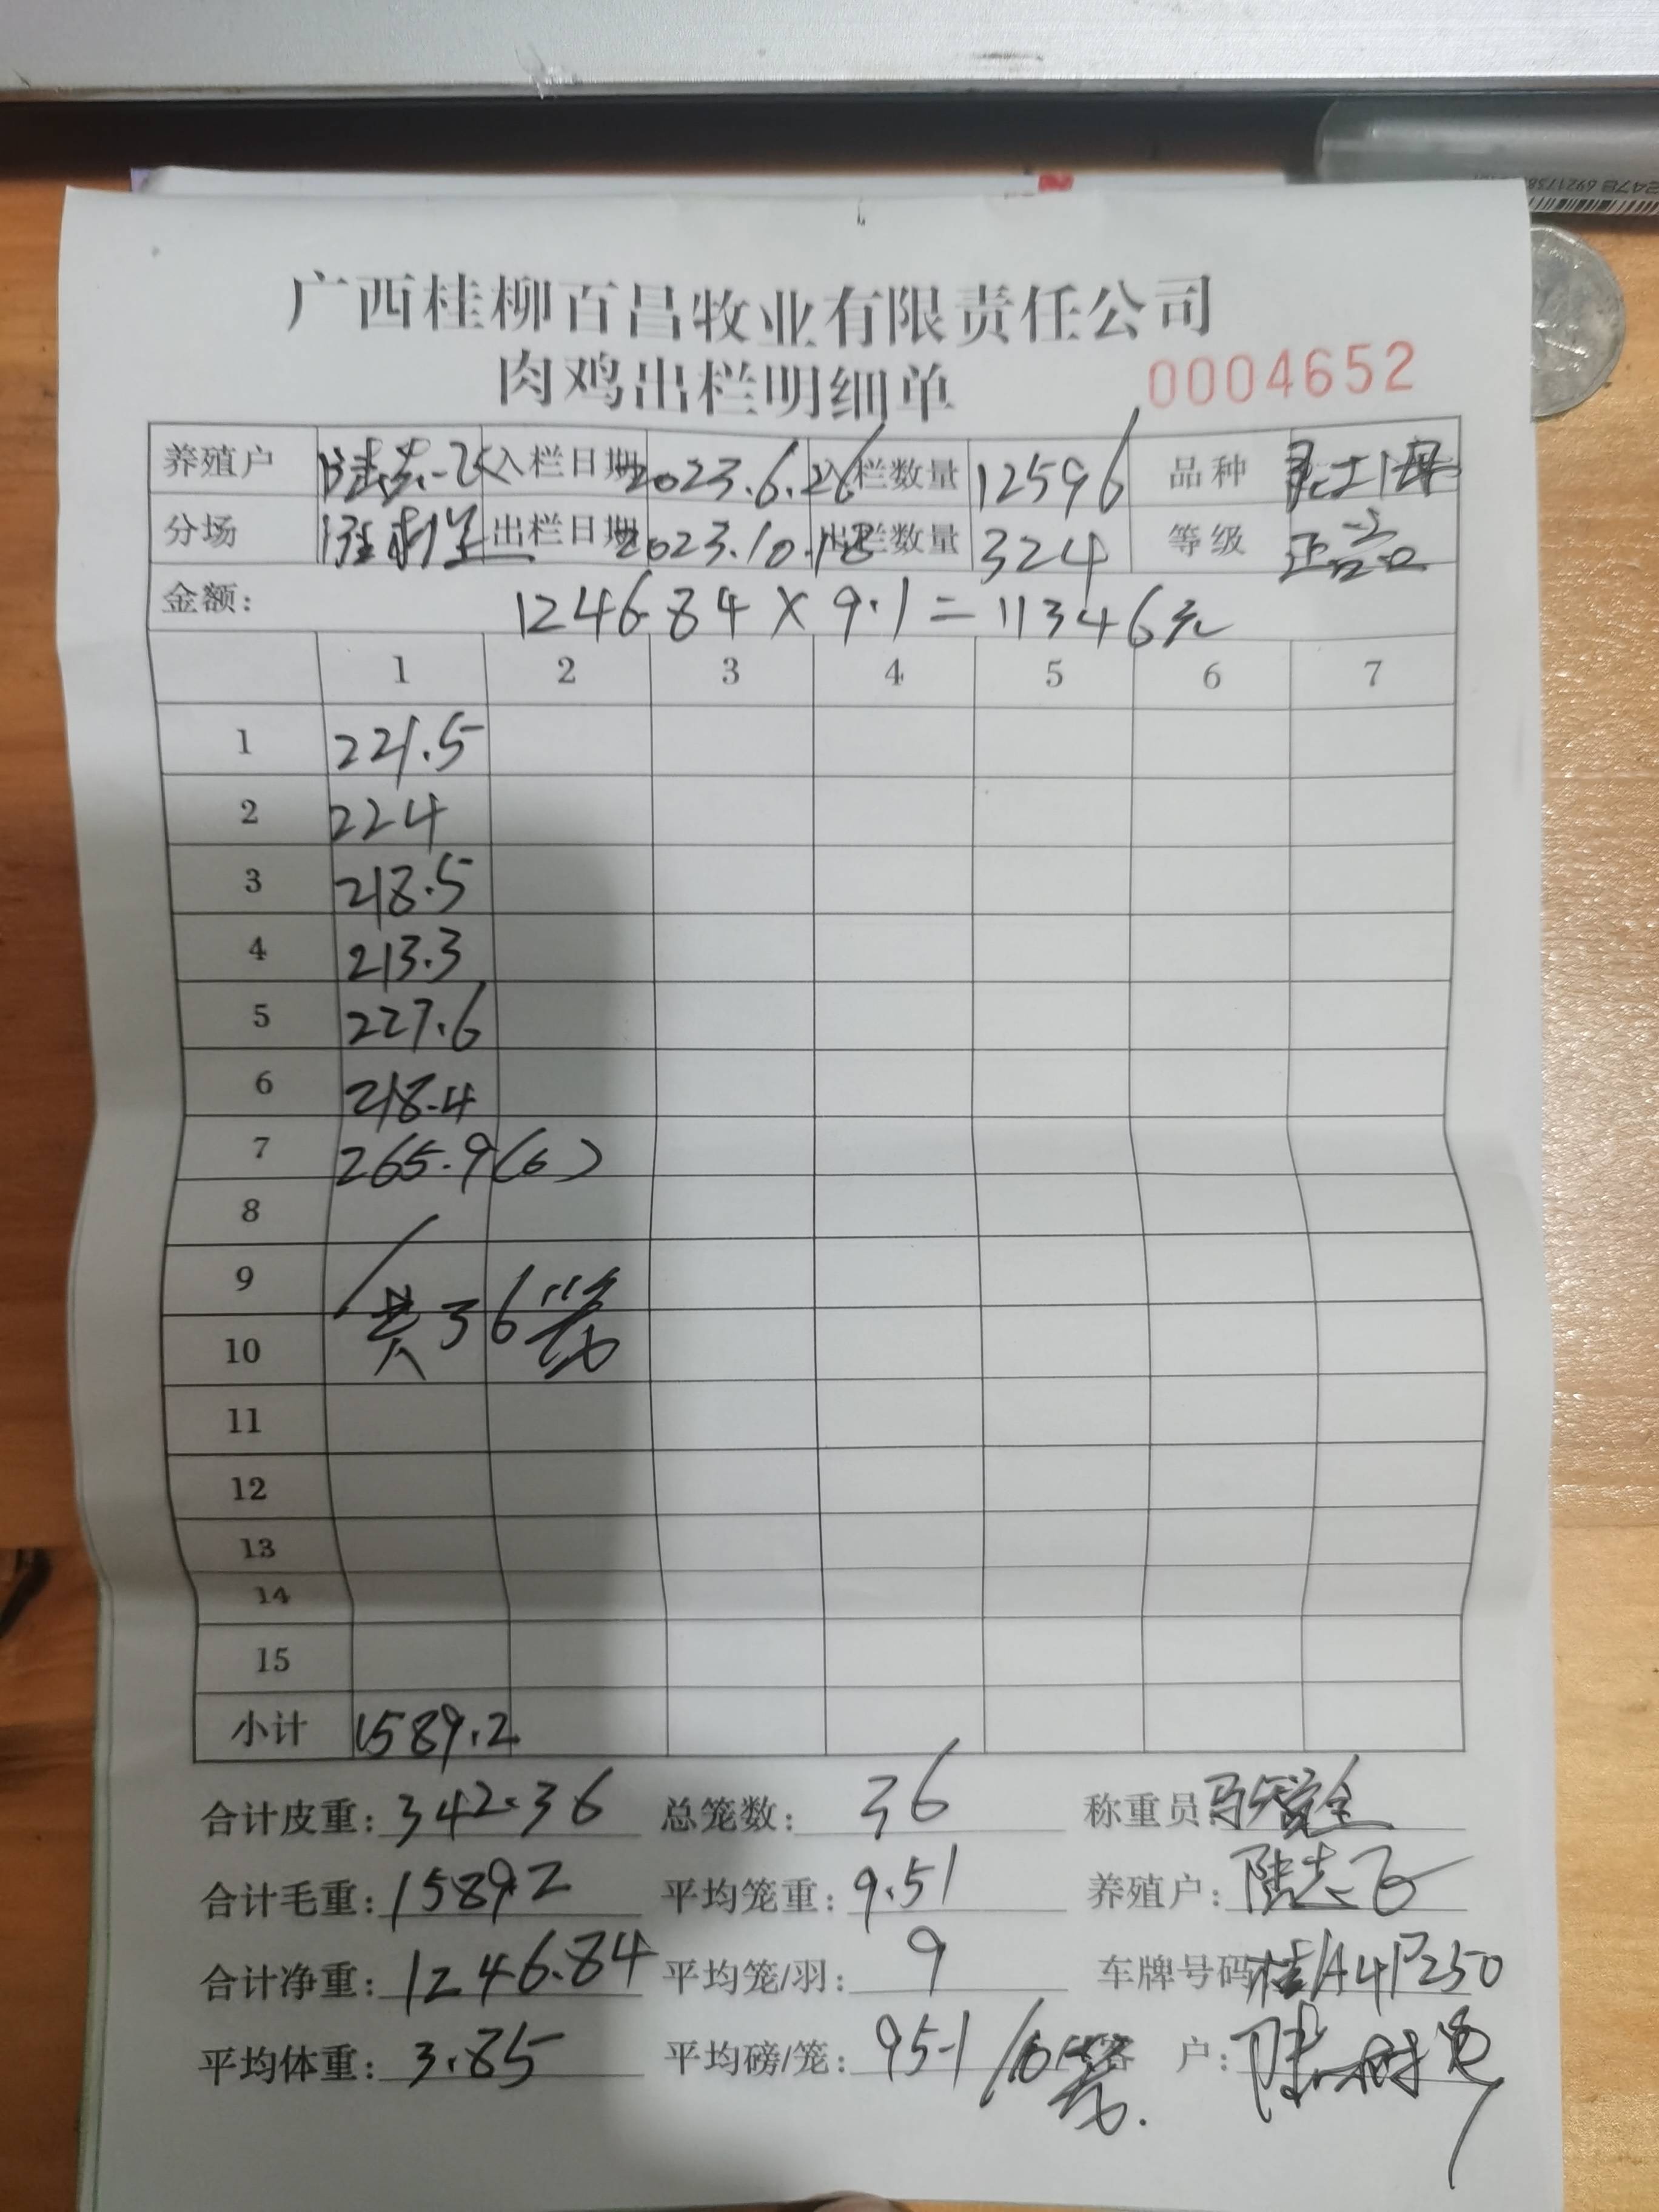 广西桂柳百昌牧业有限责任公司
肉鸡出栏明细单 0004652
养殖户 陆志飞 入栏日期 2023.6.26 入栏数量 12596 品种
分场 出栏日期 2023.10.18 出栏数量 324 等级 正品
金额: 1246.84 × 9.1 = 11346元
1 2 3 4 5 6 7
1 221.5
2 224
3 218.5
4 213.3
5 227.6
6 218.4
7 265.9(6)
8
9
共36笼
10
11
12
13
14
15
小计 1589.2
合计皮重: 342.36 总笼数: 36 称重员
合计毛重: 1589.2 平均笼重: 9.51 养殖户: 陆志飞
合计净重: 1246.84 平均笼/羽: 9 车牌号码 桂A41P250
平均体重: 3.85 平均磅/笼: 95.1/10笼. 客 户: